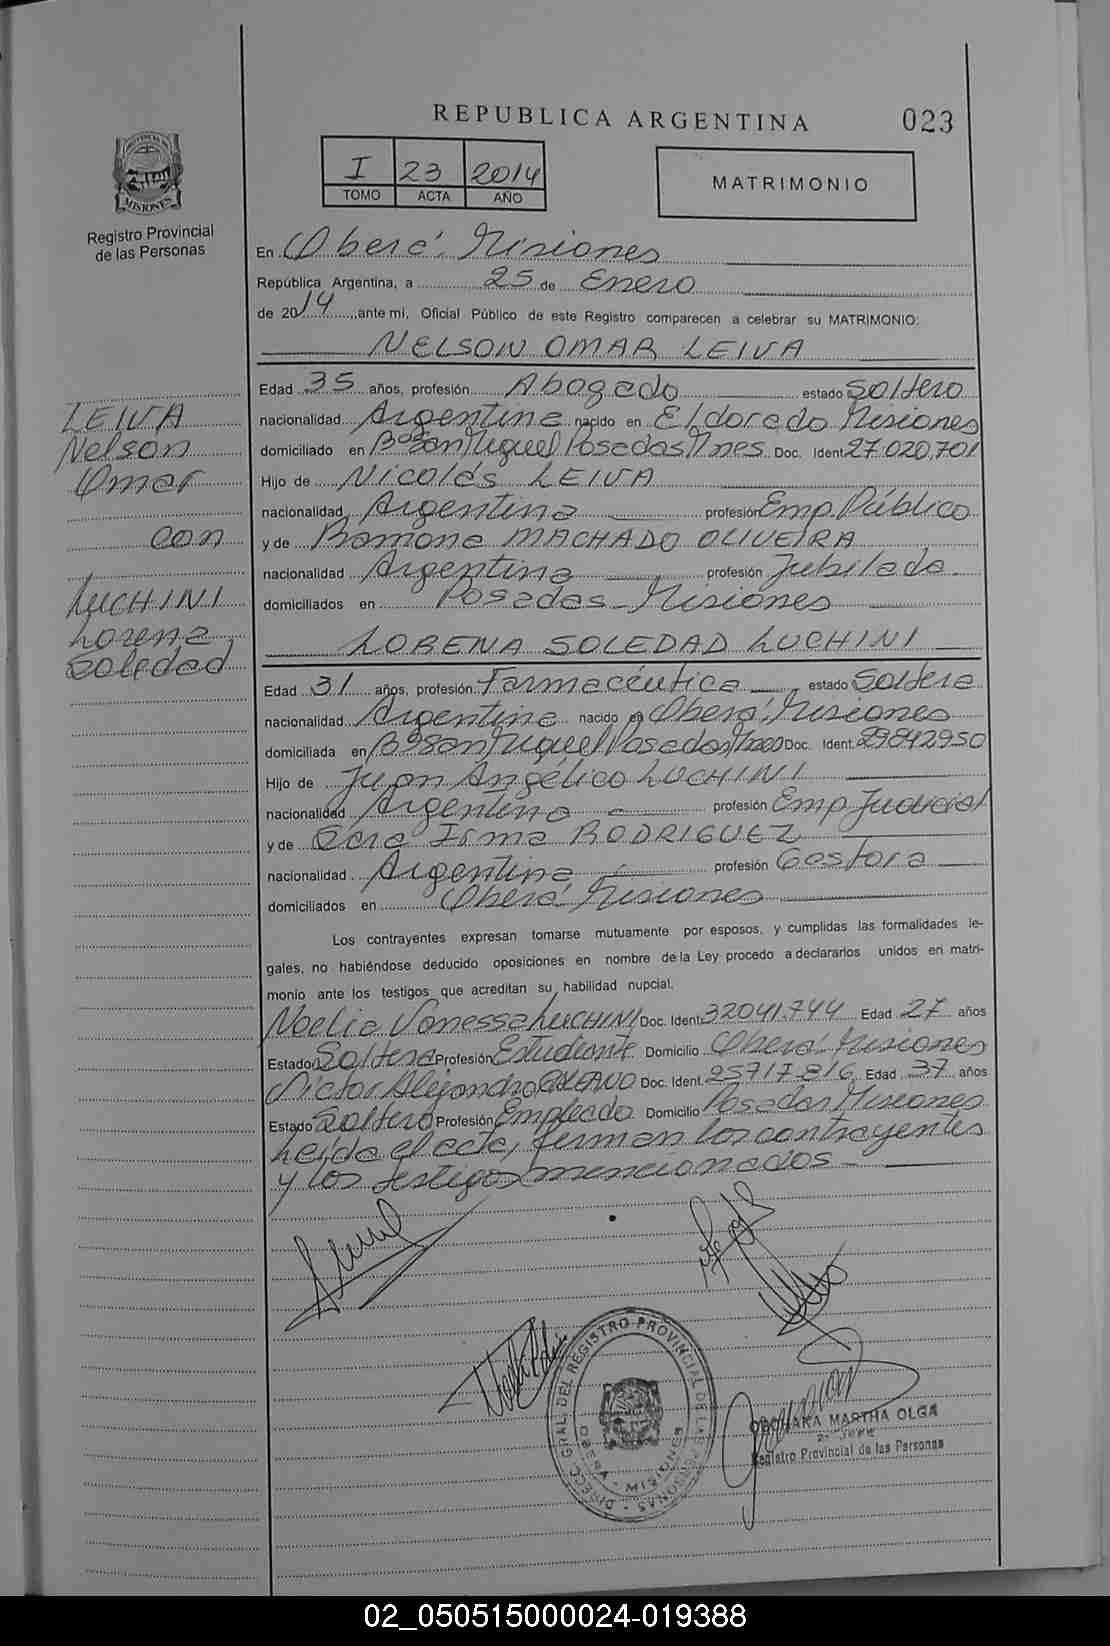 REPUBLICA ARGENTINA
023
I 23 2014
TOMO ACTA AÑO
MATRIMONIO
PROVINCIA DE MISIONES
Registro Provincial
de las Personas
En Oberá, Misiones
República Argentina, a 25 de Enero
de 2014, ante mi, Oficial Público de este Registro comparecen a celebrar su MATRIMONIO:
NELSON OMAR LEIVA
Edad 35 años, profesión Abogado estado Soltero
nacionalidad Argentina nacido en Eldorado Misiones
domiciliado en Bº San Miguel Posadas Mnes Doc. Ident 27.020.701
Hijo de Nicolás LEIVA
nacionalidad Argentina profesión Emp. Público
y de Ramona MACHADO OLIVEIRA
nacionalidad Argentina profesión Jubilada
domiciliados en Posadas - Misiones
LORENA SOLEDAD LUCHINI
Edad 31 años, profesión Farmacéutica estado Soltera
nacionalidad Argentina nacido en Oberá, Misiones
domiciliada en Bº San Miguel Posadas Mnes Doc. Ident. 29842950
Hijo de Juan Angélico LUCHINI
nacionalidad Argentina profesión Emp Judicial
y de Irma RODRIGUEZ
nacionalidad Argentina profesión Gestora
domiciliados en Oberá Misiones
Los contrayentes expresan tomarse mutuamente por esposos, y cumplidas las formalidades le-
gales, no habiéndose deducido oposiciones en nombre de la Ley procedo a declararlos unidos en matri-
monio ante los testigos que acreditan su habilidad nupcial.
Noelia Vanessa LUCHINI Doc. Ident. 32041.744 Edad 27 años
Estado Soltera Profesión Estudiante Domicilio Oberá - Misiones
Victor Alejandro Doc. Ident. 25717.816 Edad 37 años
Estado Soltero Profesión Empleado Domicilio Posadas Misiones
Leída el acta, firman los contrayentes
y los testigos mencionados -
LEIVA
Nelson
Omar
con
LUCHINI
Lorena
Soledad
DIRECC. GRAL. DEL REGISTRO PROVINCIAL DE LAS PERSONAS
OBERA - MISIONES
MARTHA OLGA
Registro Provincial de las Personas
02_050515000024-019388